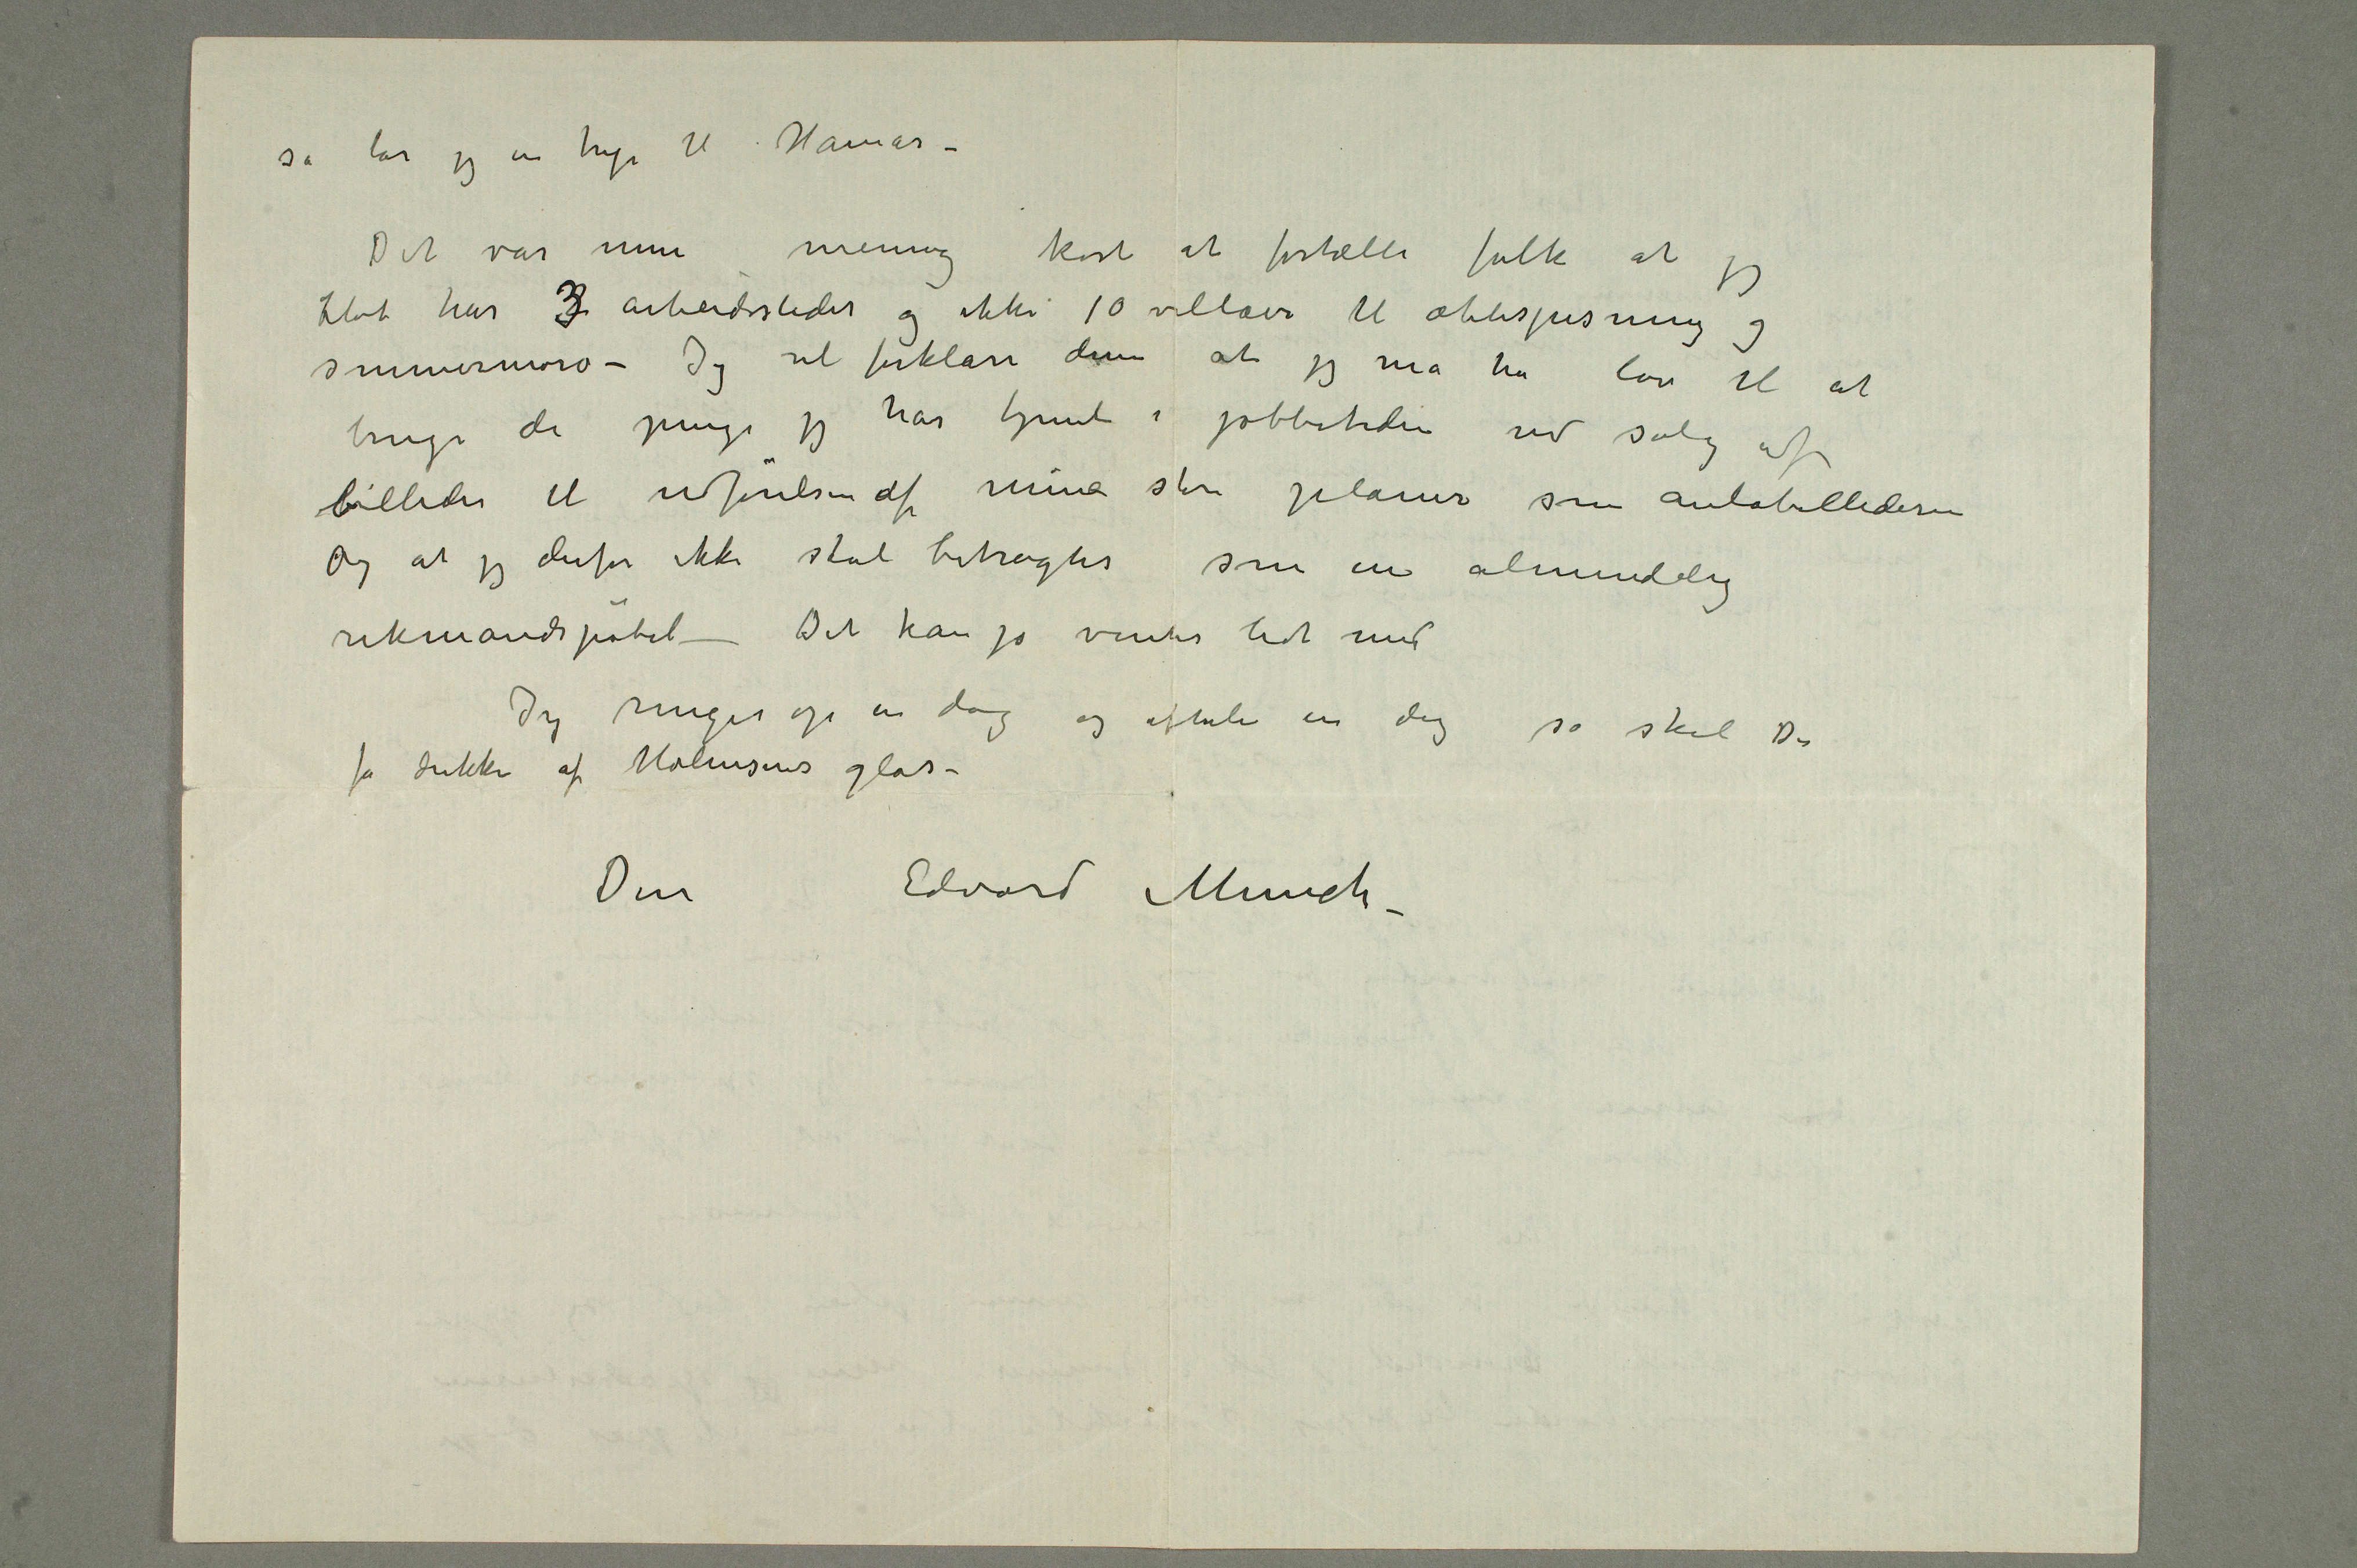 så tar jeg en trip til Hamar –
Det var min mening kort at fortælle folk at jeg
blot har 3 arbeidssteder og ikke 10 villaer til æblespisning og
sommermoro – Jeg vil forklare dem at jeg må ha lov til at
bruge de penge jeg har tjent i jobbetiden ved salg af
billeder til udførelsen af mine store planer som aulabillederne
Og at jeg derfor ikke skal betragtes som en almindelig
rikmandspöbel – Det kan jo ventes lidt med
Jeg ringer op en dag og aftale en dag så skal De
få drikke af Holmsens glas –
Deres Edvard Munch –